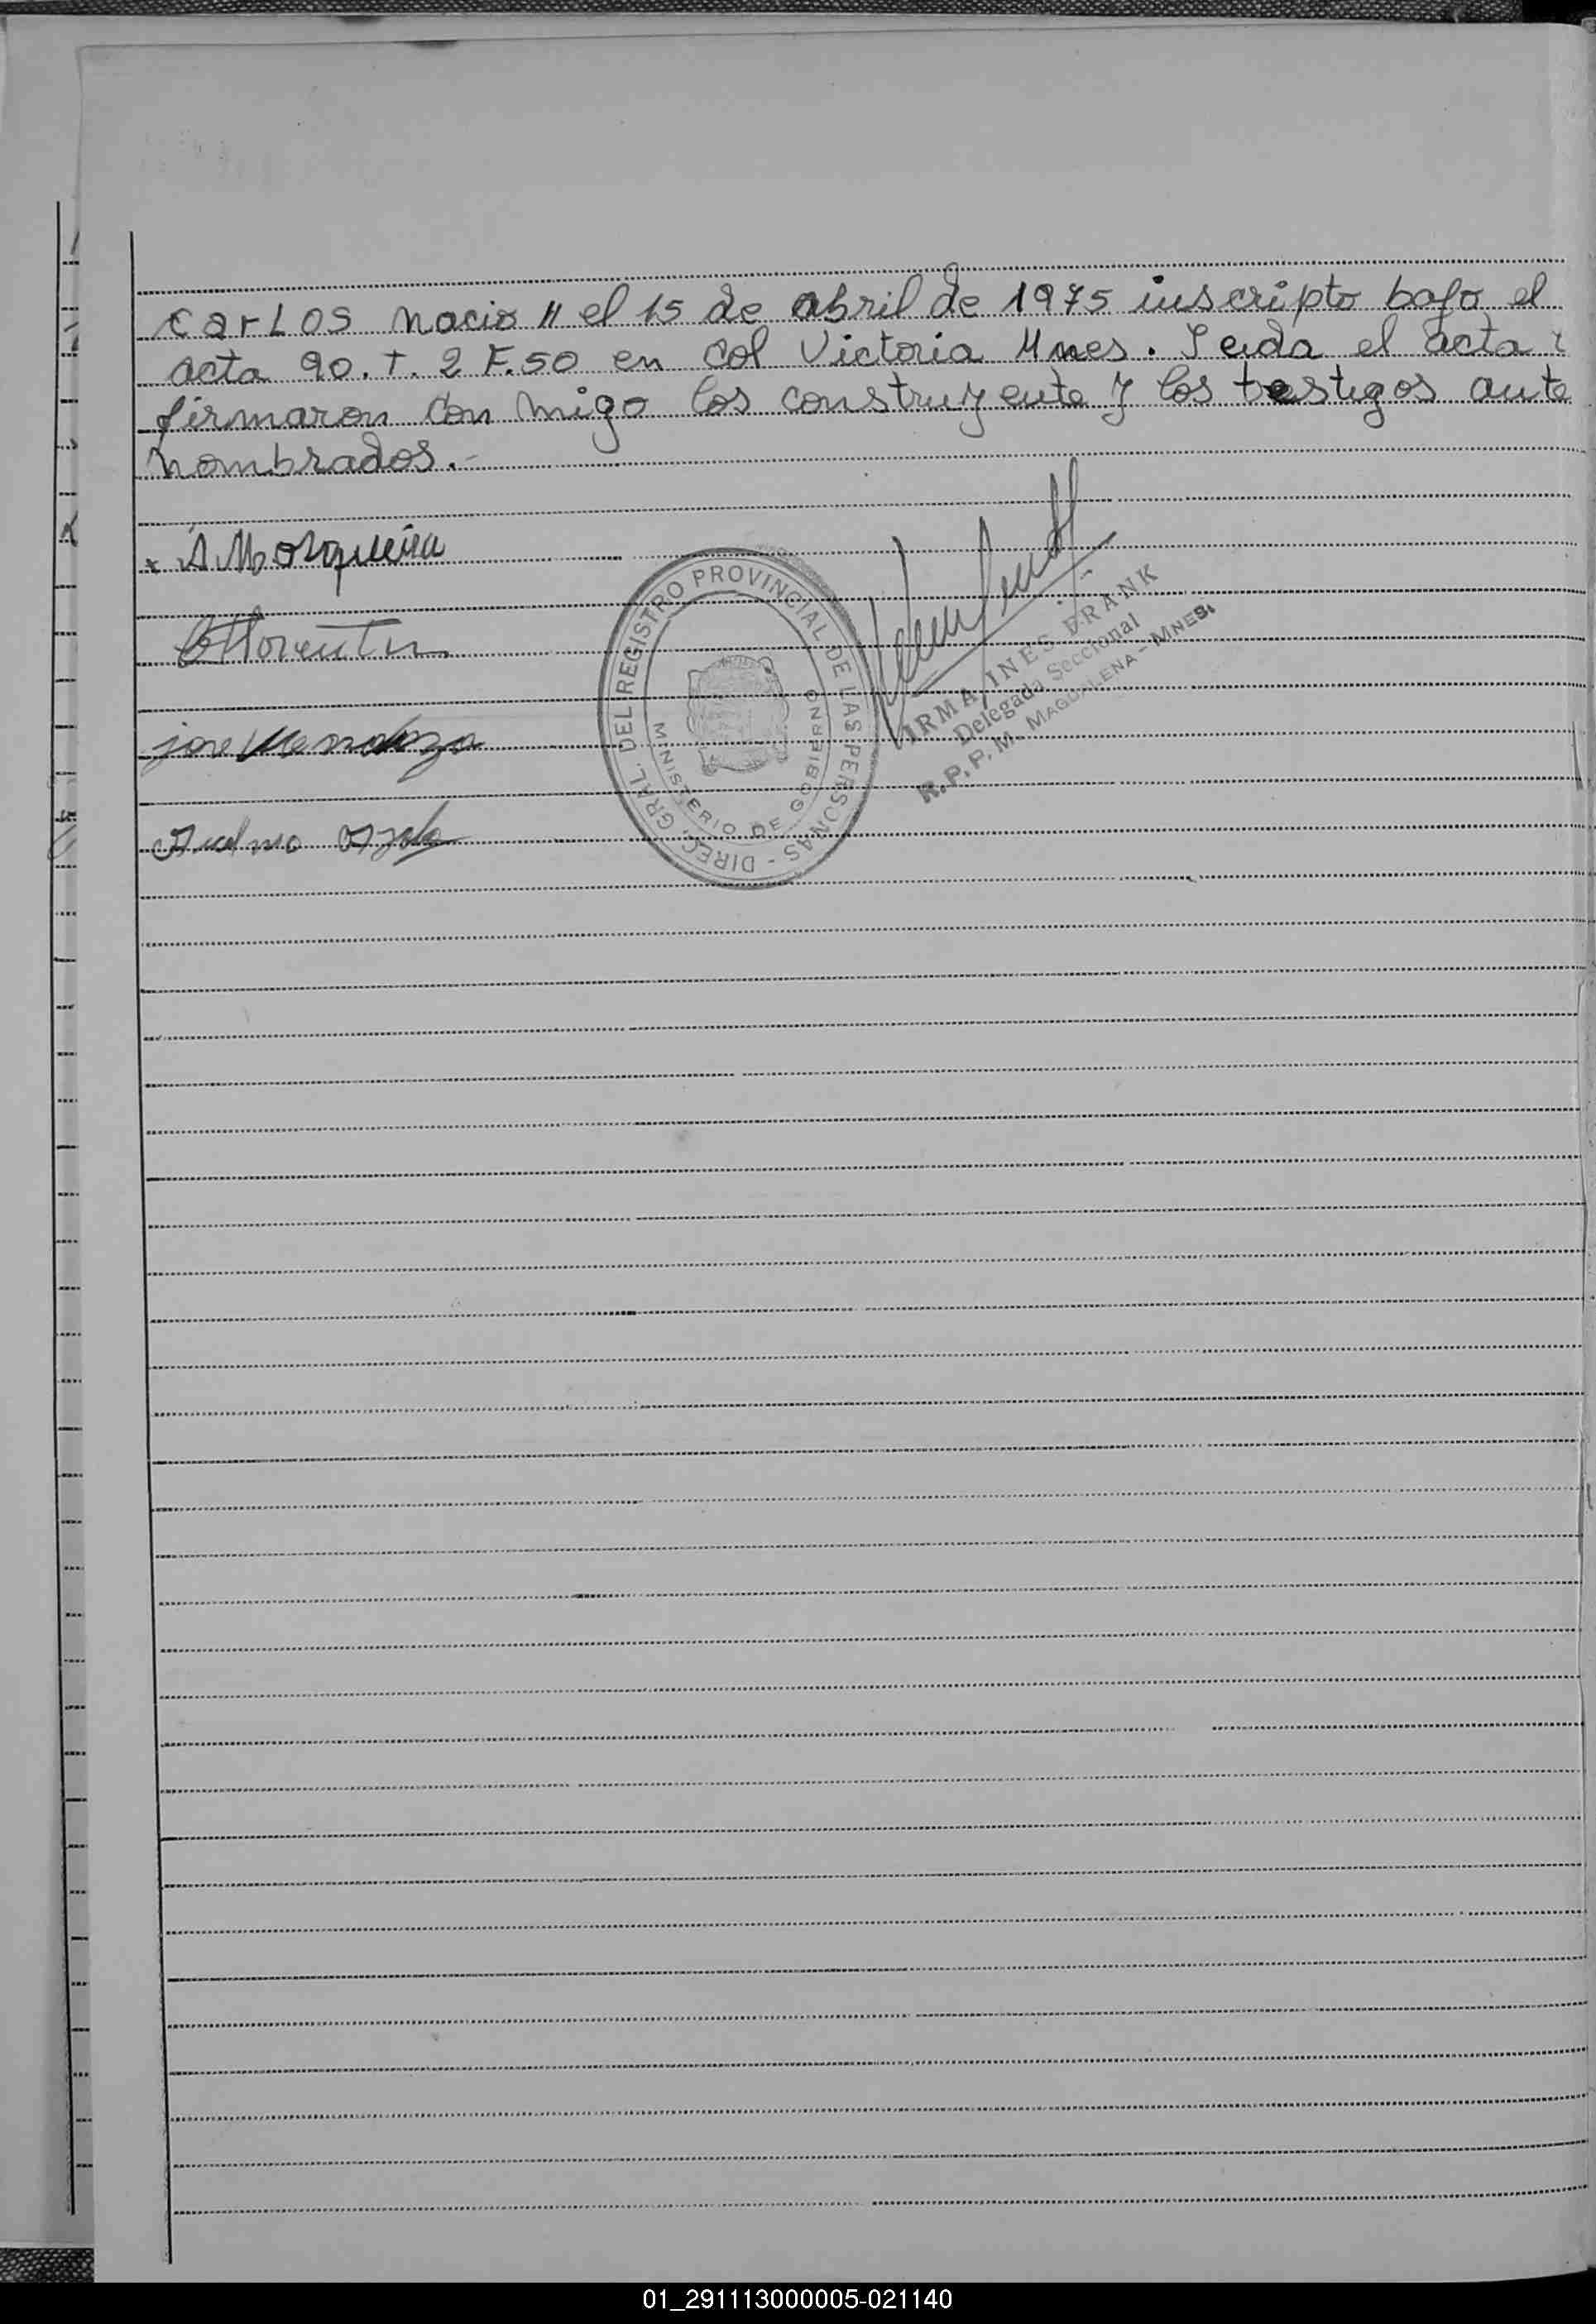 carLos nacio " el 15 de abril de 1975 inscripto bajo el
acta 90. T. 2 F. 50 en Col Victoria Mnes. Leida el acta
firmaron con migo los construyente y los testigos ante
nombrados.-
x A Morqueira
jose Mendoza
DIREC. GRAL. DEL REGISTRO PROVINCIAL DE LAS PERSONAS -
MINISTERIO DE GOBIERNO
IRMA INES FRANK
Delegada Seccional
R. P. P. M. MAGDALENA - MNES.
01_291113000005-021140